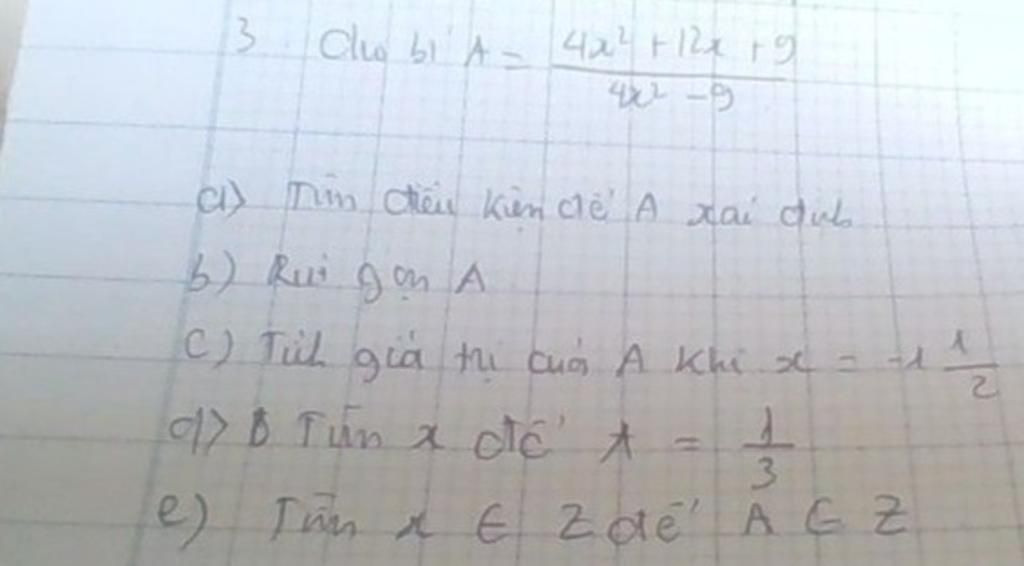 3. Cho bt A = \frac{4x² + 12x + 9}{4x² - 9}
a) Tìm điều kiện để A xác định
b) Rút gọn A
c) Tính giá trị của A khi x = -1 \frac{1}{2}
d) Tìm x để A = \frac{1}{3}
e) Tìm x ∈ Z để A ∈ Z